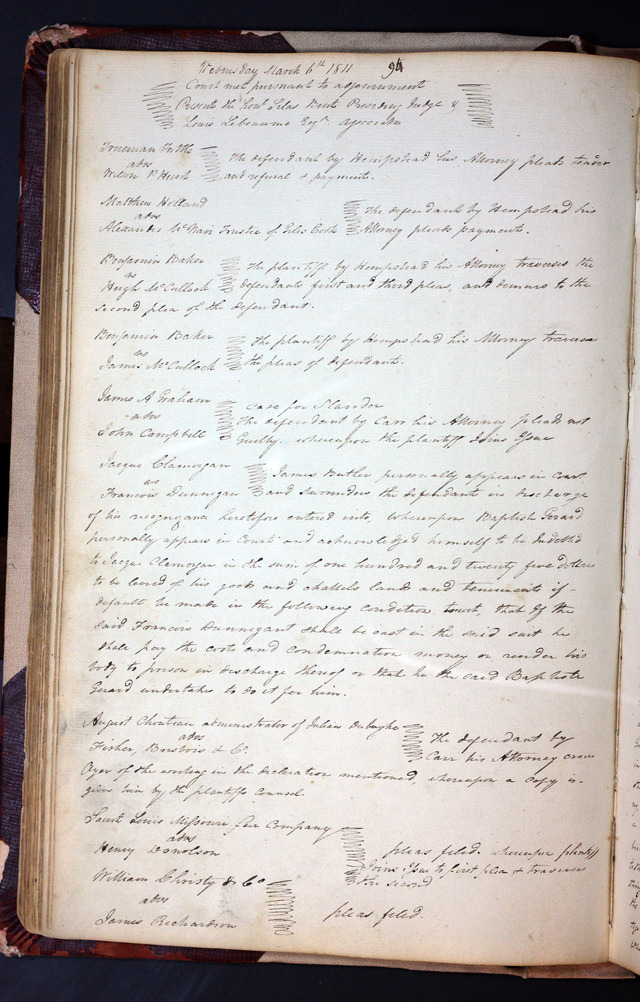 Wednesday March 6th 1811 94
Court met pursuant to adjournment
Present the Honl Silas Bent Presiding Judge &
Louis Lebeaume Esqr. associate
Trueman Tuttle
advs
The defendant by Hempstead his Attorney pleads tender
and refusal & payment.
Matthew Holland
advs
Alexander McNair Trustee of Giles Cook
The defendant by Hempstead his
Attorney pleads payment.
Benjamin Baker
vs
Hugh McCulloch
The plaintiff by Hempstead his Attorney traverses the
defendants first and third pleas, and demurs to the
second plea of the defendant.
Benjamin Baker
vs
James McCulloch
The plaintiff by Hempstead his Attorney traverse
the pleas of defendant.
James A Graham
advs
John Campbell
case for Slander
The defendant by Carr his Attorney pleads not
Guilty. whereupon the plaintiff Joins Issue
Jacque Clamorgan
vs
Francois Dunnegan
James Butler personally appears in Court
and surrenders the defendant in discharge
of his recognzance heretofore entered into, whereupon Baptiste Gerard
personally appears in Court and acknowledged himself to be Indebted
to Jacque Clamorgan in the sum of one hundred and twenty five dollars
to be levied of his goods and chattels lands and tenements if
default be made in the following condition, towit, that If the
said Francois Dunnegant shall be cast in the said suit he
shall pay the costs and condemnation money or render his
body to prison in discharge thereof or that he the said Baptiste
Gerard undertakes to do it for him.
August Chouteau administrator of Julien Dubuque
advs
Fisher, Bouvois & Co.
The defendant by
Carr his Attorney craves
Oyer of the writing in the declaration mentioned, whereupon a Copy is
given him by the plaintiffs Counsel.
Saint Louis Missouri fur Company
advs
Henry Donolson
pleas filed. whereupon plantiff
Joins Issue to first plea & traverse
the second
William Christy & Co
advs
James Richardson
pleas filed.